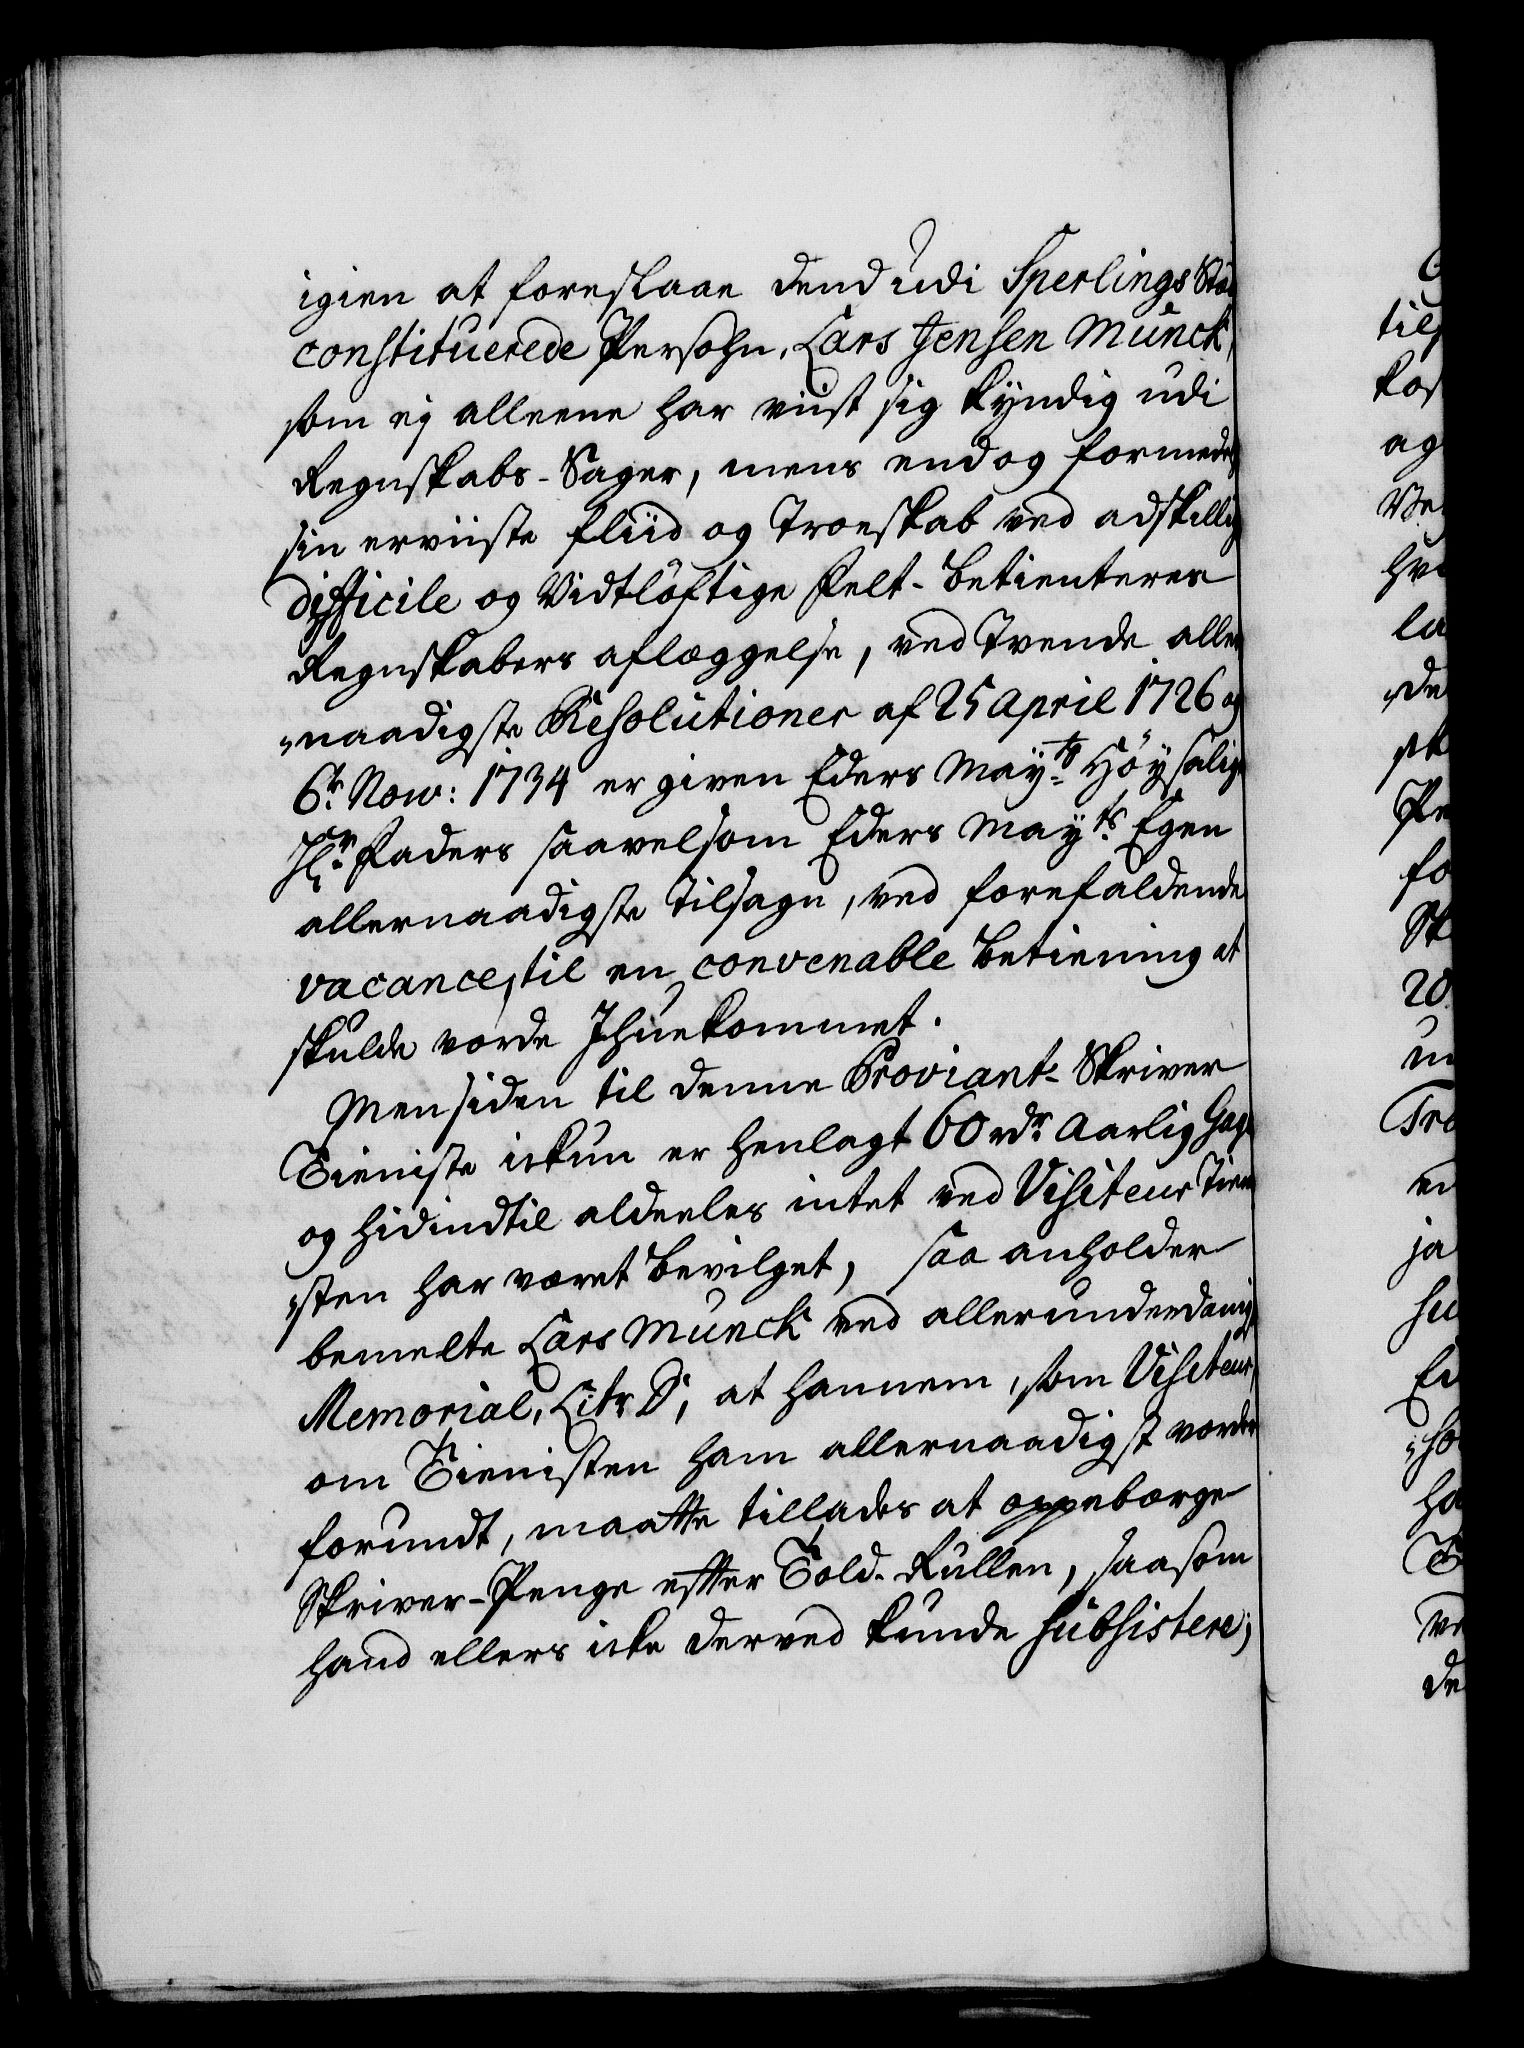 igien at foreslaae dend udi Sperlings Stæd
constituerede Persohn, Lars Jensen Munck,
som ej alleene har viist sig kyndig udi
Regnskabs-Sager, mens endog formedelst
sin erviiste fliid og Troeskab ved adskillig
difficile og Vidtløftige Felt-Betienteres
Regnskabers aflæggelse, ved Tvende aller
„naadigste Resolutioner af 25 April 1726 og
6te Nov: 1734 er given Eders Mayts Høysalig
Hr Faders saavelsom Eders Mayts Egen
allernaadigste Tilsagn, ved forefaldende
vacance, til en convenable Betiening at
skulde vorde Ihuekommet.
Men siden til denne Proviant-Skriver
Tieniste ickun er henlagt 60 rdr Aarlig Gage
og hidindtil aldeeles intet ved Visiteur Tieni
„sten har været bevilget, saa anholder
bemelte Lars Munck ved allerunderdanigst
Memorial, Litr D, at hannem, som Visiteur,
om Tienisten ham allernaadigst vorder
forundt, maatte tillades at oppebærge
Skriver-Penge efter Told-Rullen, saasom
hand ellers icke derved kunde subsistere;
til
kos
ag
Ve
hv
la
„de
sk
Pe
fo
Sk
20
un
Tro
en
ja
su
Ei
„so
ha
T
ve
de